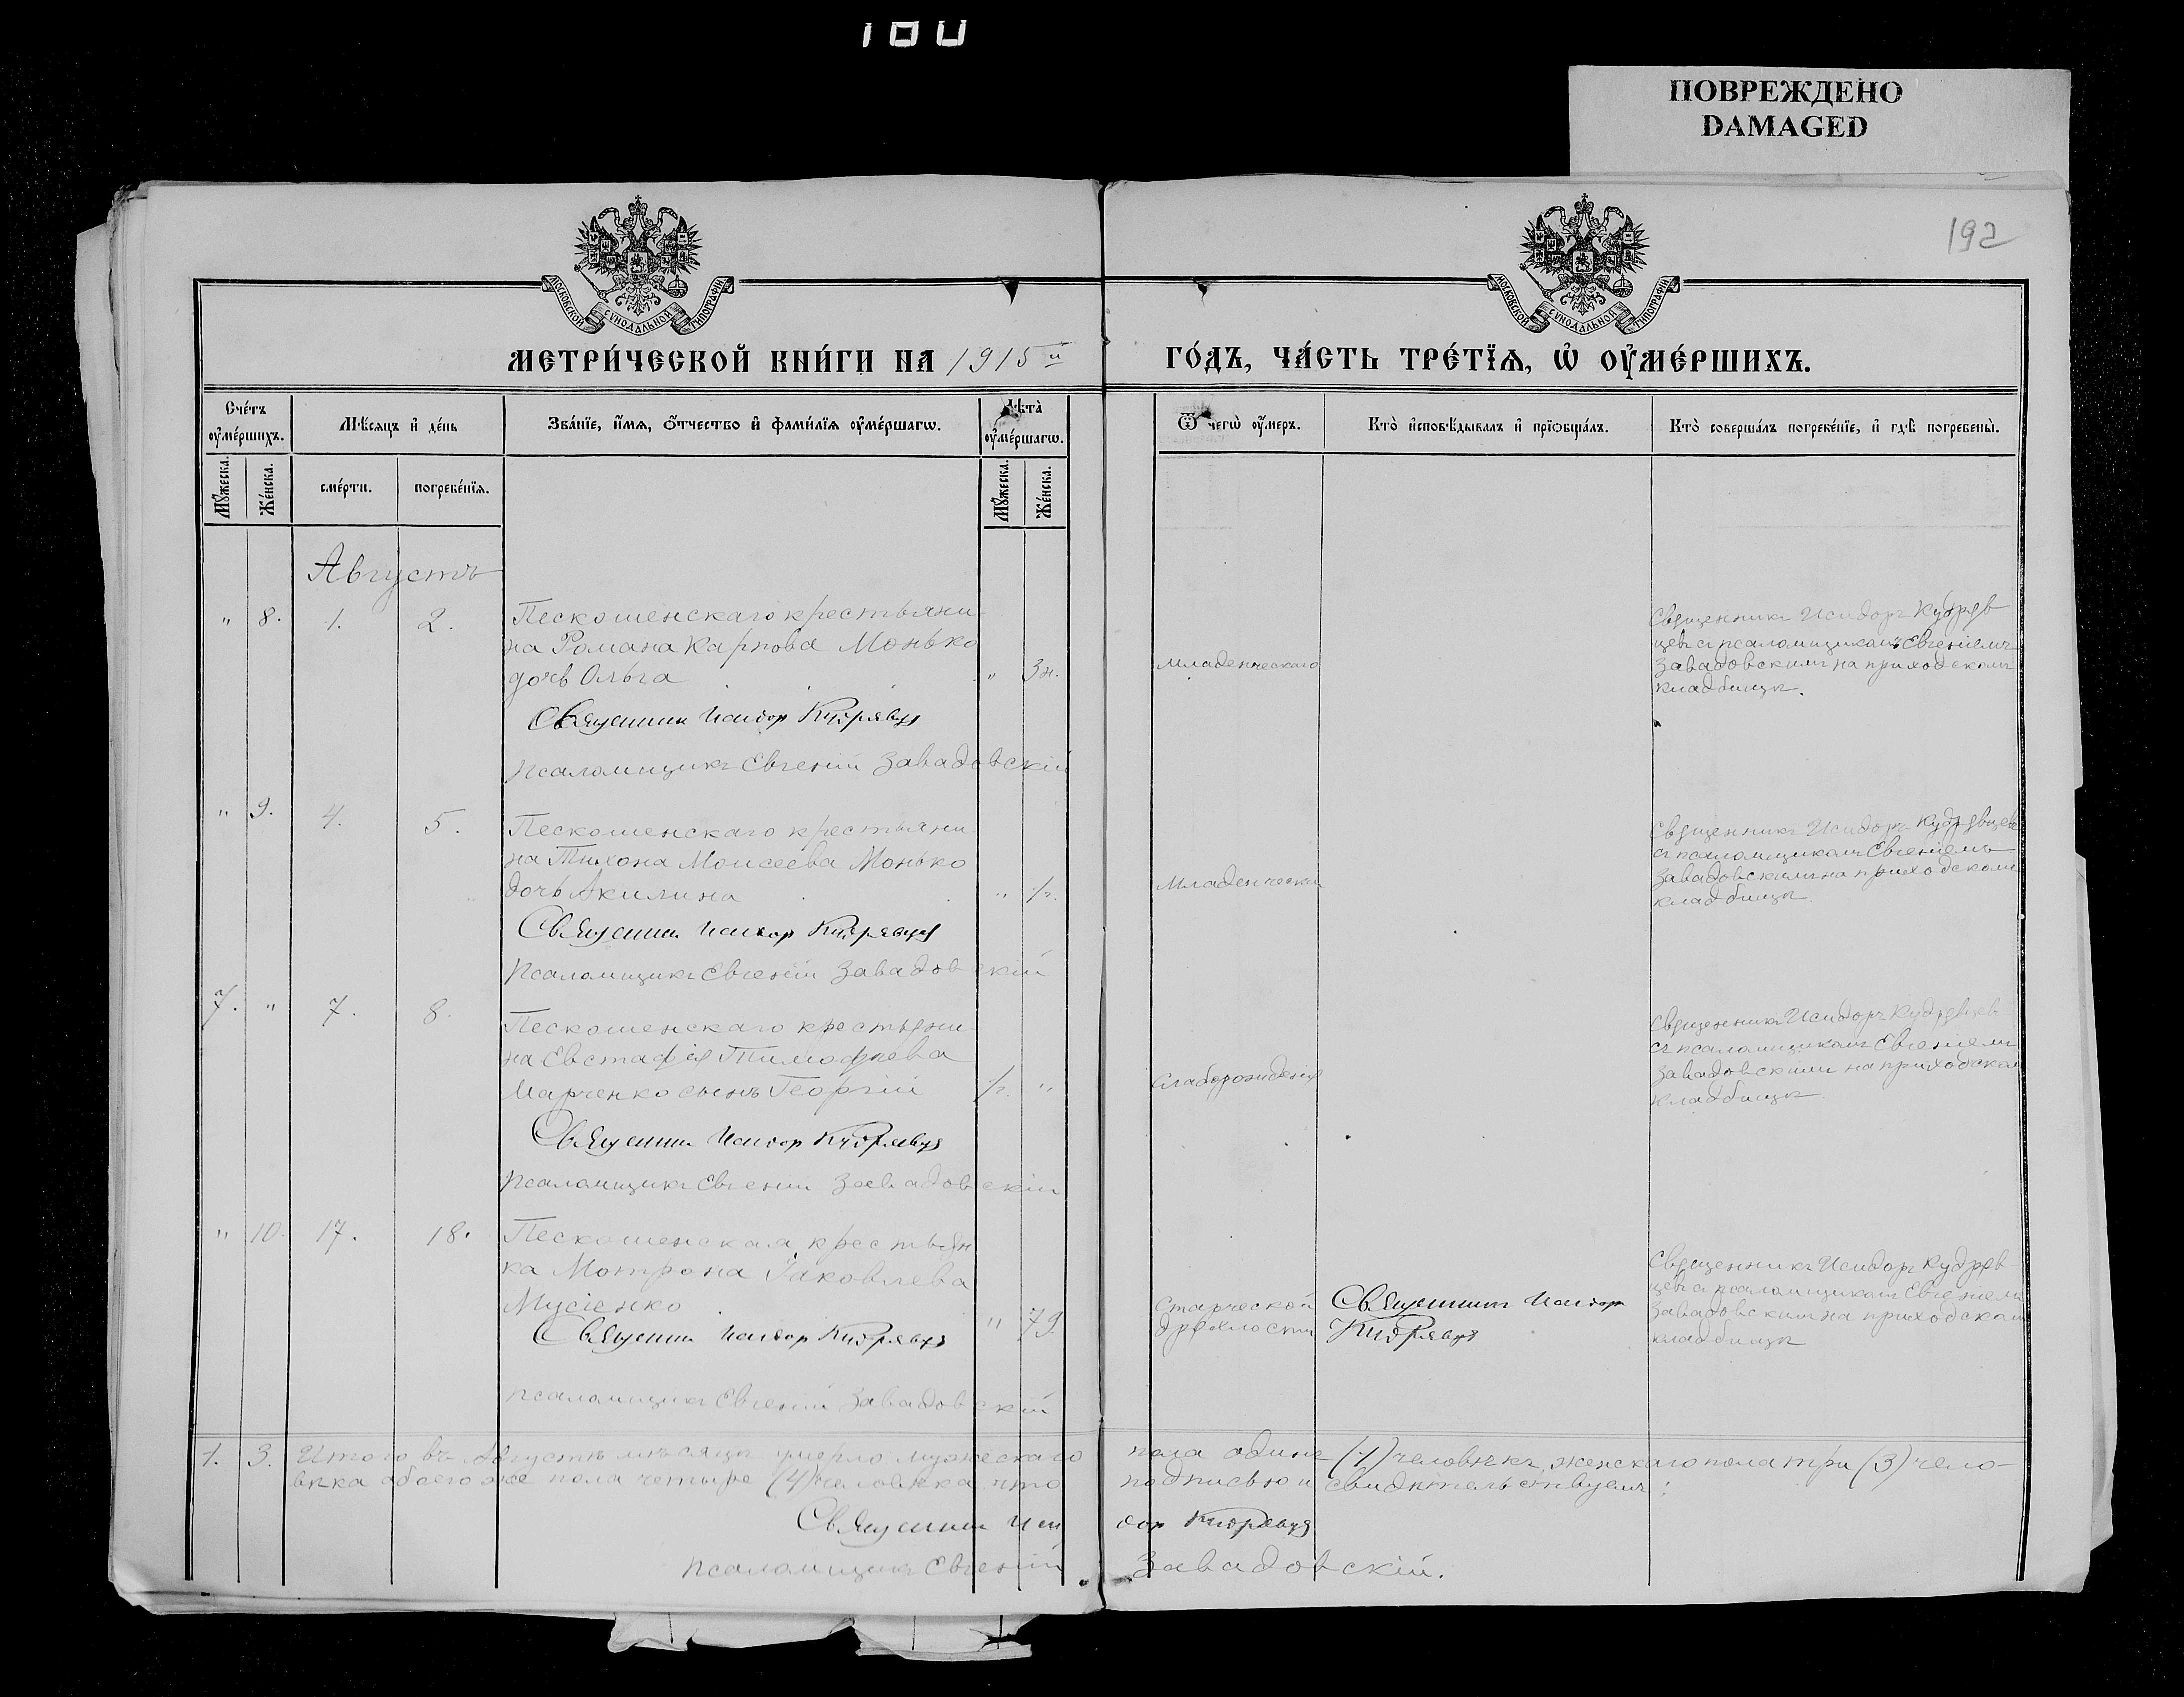 180
ПОВРЕЖДЕНО
DAMAGED
192
МОСКОВСКОЙ СУНОДАЛЬНОЙ ТИПОГРАФІИ
МОСКОВСКОЙ СУНОДАЛЬНОЙ ТИПОГРАФІИ
МЕТРИ́ЧЕСКОЙ КНИ́ГИ НА 1915й ГО́ДЪ, ЧА́СТЬ ТРЕ́ТІѦ, Ѡ҆ ОУ҆МЕ́РШИХЪ.
Сче́тъ оу҆ме́ршихъ.
Мѣ́сяцъ и҆ де́нь
Зва́нїе, и҆́мѧ, ѻ҆́тчество и҆ фами́лїѧ оу҆ме́ршагѡ.
Лѣ́та оу҆ме́ршагѡ.
Ѿ чегѡ̀ оу҆́меръ.
Кто̀ и҆сповѣ́дывалъ и҆ прїѻбща́лъ.
Кто̀ соверша́лъ погребе́нїе, и҆ гдѣ̀ погребены̀.
Мꙋ́жеска.
Же́нска.
сме́рти.
погребе́нїѧ.
Мꙋ́жеска.
Же́нска.
Августъ
" 8. 1. 2. Пескошенскаго крестьяни-
на Романа Карпова Монько
дочь Ольга " 3н.
Священник Исидор Кудрявцев
Псаломщикъ Евгеній Завадовскій
младенческаго
Священникъ Исидоръ Кудряв
цевъ съ псаломщикомъ Евгеніемъ
Завадовскимъ на приходскомъ
кладбищѣ.
" 9. 4. 5. Пескошенскаго крестьяни
на Тихона Моисеева Монько
дочь Акилина " 1/г.
Священник Исидор Кудрявцев
Псаломщикъ Евгеній Завадовскій
Младенческ
Священникъ Исидоръ Кудрявцевъ
съ псаломщикомъ Евгеніемъ
Завадовскимъ на приходскомъ
кладбищѣ.
7. " 7. 8. Пескошенскаго крестьяни-
на Евстафія Тимофѣева
Марченко сынъ Георгій 1/г. "
Священник Исидор Кудрявцев
Псаломщикъ Евгеній Завадовскій
слаборожденія
Священникъ Исидоръ Кудрявцевъ
съ псаломщикомъ Евгеніемъ
Завадовскимъ на приходском
кладбищѣ
" 10. 17. 18. Пескошенская крестьян
ка Мотрона Іаковлева
Мусіенко " 79.
Священник Исидор Кудрявцев
Псаломщикъ Евгеній Завадовскій
Старческой
дряхлости
Священникъ Исидор
Кудрявцев
Священникъ Исидоръ Кудряв-
цевъ съ псаломщикомъ Евгеніемъ
Завадовскимъ на приходском
кладбищѣ
1. 3. Итого въ Августѣ мѣсяцѣ умерло мужескаго пола одинъ (1) человѣкъ, женскаго пола три (3) чело-
вѣка обоего же пола четыре (4) человѣка, что подписью и свидѣтельствуемъ:
Священник Исидор Кудрявцев
Псаломщикъ Евгеній Завадовскій.